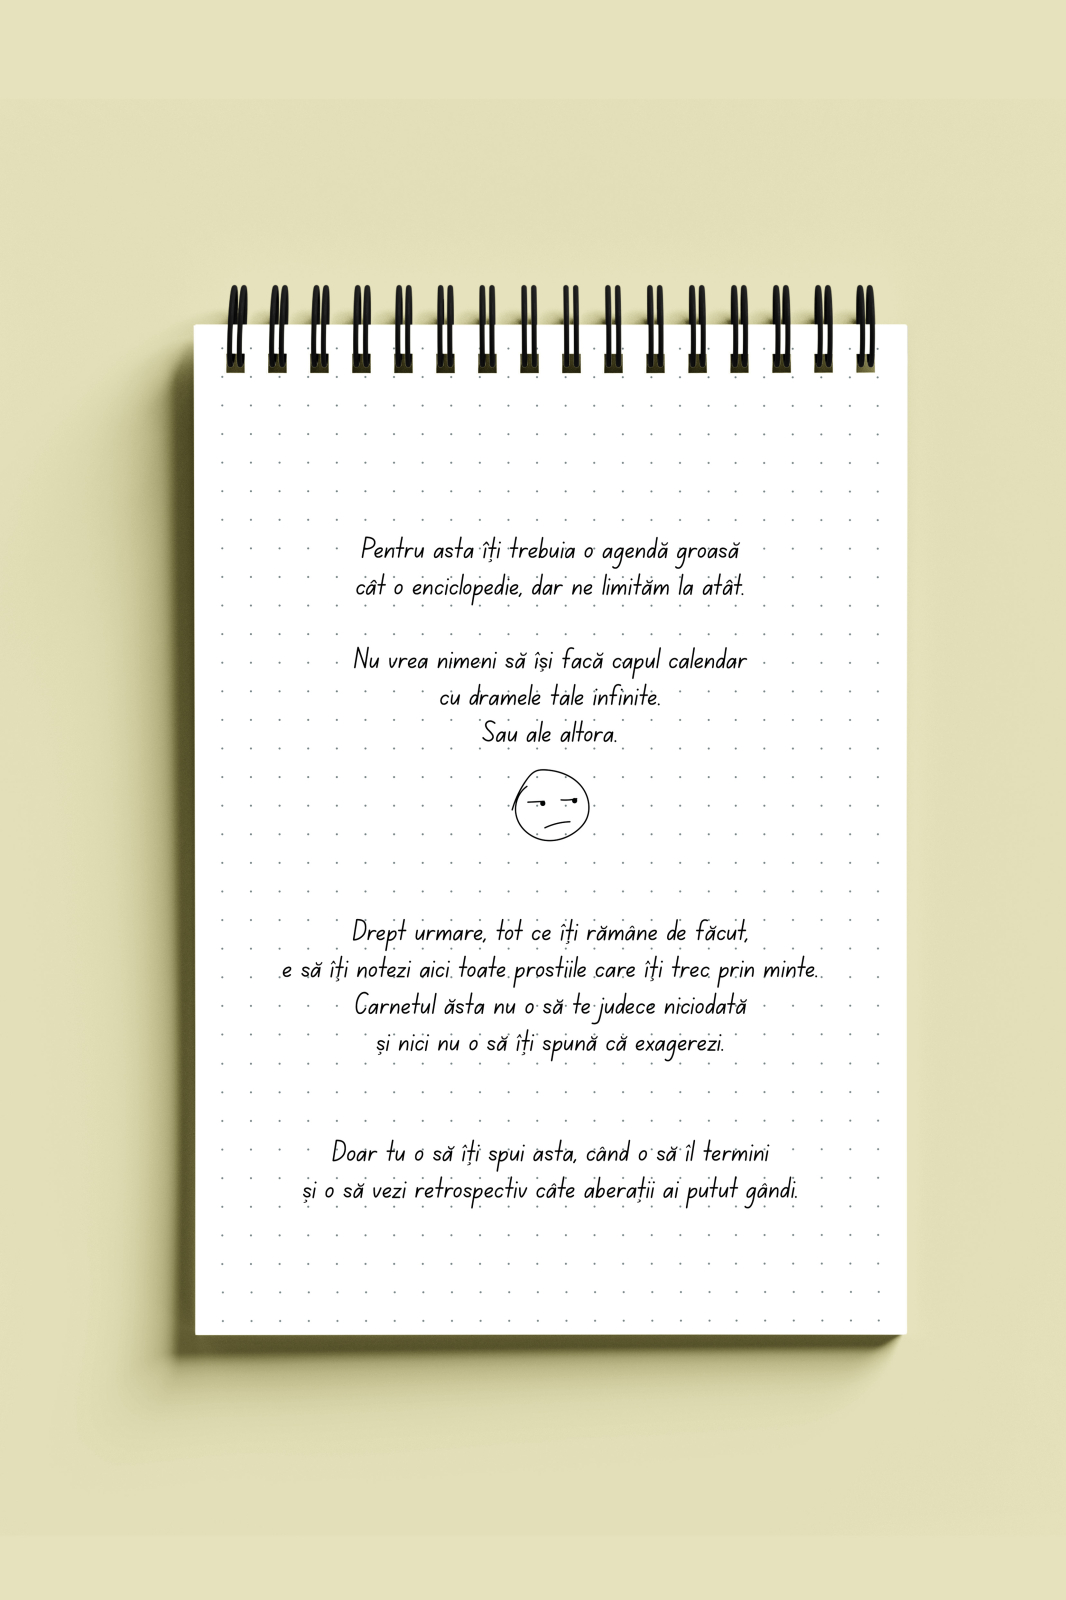 Pentru asta îți trebuia o agendă groasă
cât o enciclopedie, dar ne limităm la atât.
Nu vrea nimeni să își facă capul calendar
cu dramele tale infinite.
Sau ale altora.
Drept urmare, tot ce îți rămâne de făcut,
e să îți notezi aici toate prostiile care îți trec prin minte.
Carnetul ăsta nu o să te judece niciodată
și nici nu o să îți spună că exagerezi.
Doar tu o să îți spui asta, când o să îl termini
și o să vezi retrospectiv câte aberații ai putut gândi.